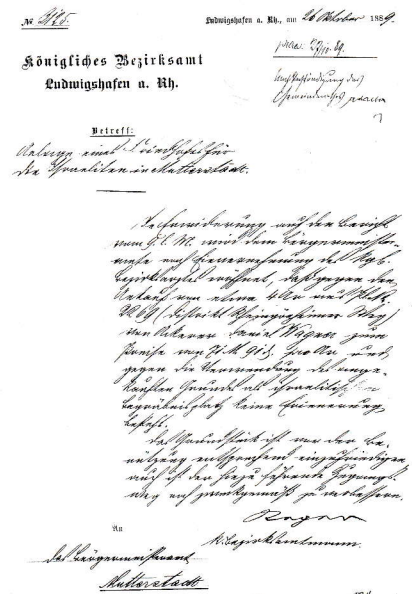 № 3125.
Ludwigshafen a. Rh., am 26 Oktober 1889.
praes. 27/10. 89.
Königliches Bezirksamt
Ludwigshafen a. Rh.
Betreff:
Anlage eines Friedhofes für
die Israeliten in Mutterstadt.
In Erwiderung auf den Bericht
vom wird dem Bürgermeister-
amte nach Einvernehmung des Kgl.
Bezirksarztes eröffnet, daß gegen den
Ankauf von etwa 4 Ar
(Distrikt Rheingönheimer Weg)
von Ackerer Daniel Wagner zum
Preise von 71 M pro Ar und
gegen die Verwendung des ange-
kauften Geländes als israelitischen
Begräbnisplatz keine Erinnerung
besteht.
Das Grundstück ist vor der Be-
nützung entsprechend einzufriedigen
auch ist der hiezu führende Zugangs-
weg noch zu verbessern.
K. Bezirksamtmann.
An
das Bürgermeisteramt
Mutterstadt